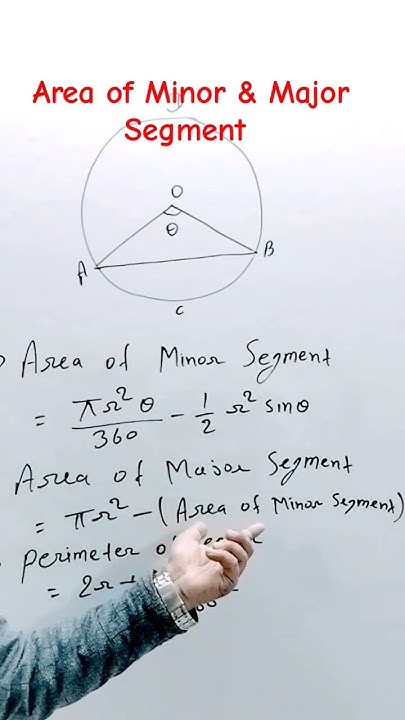 Area of Minor & Major
Segment
O
θ
A
B
C
Area of Minor Segment
= πr²θ/360 - 1/2 r² sinθ
Area of Major Segment
= πr² - (Area of Minor Segment)
Perimeter of
= 2r +